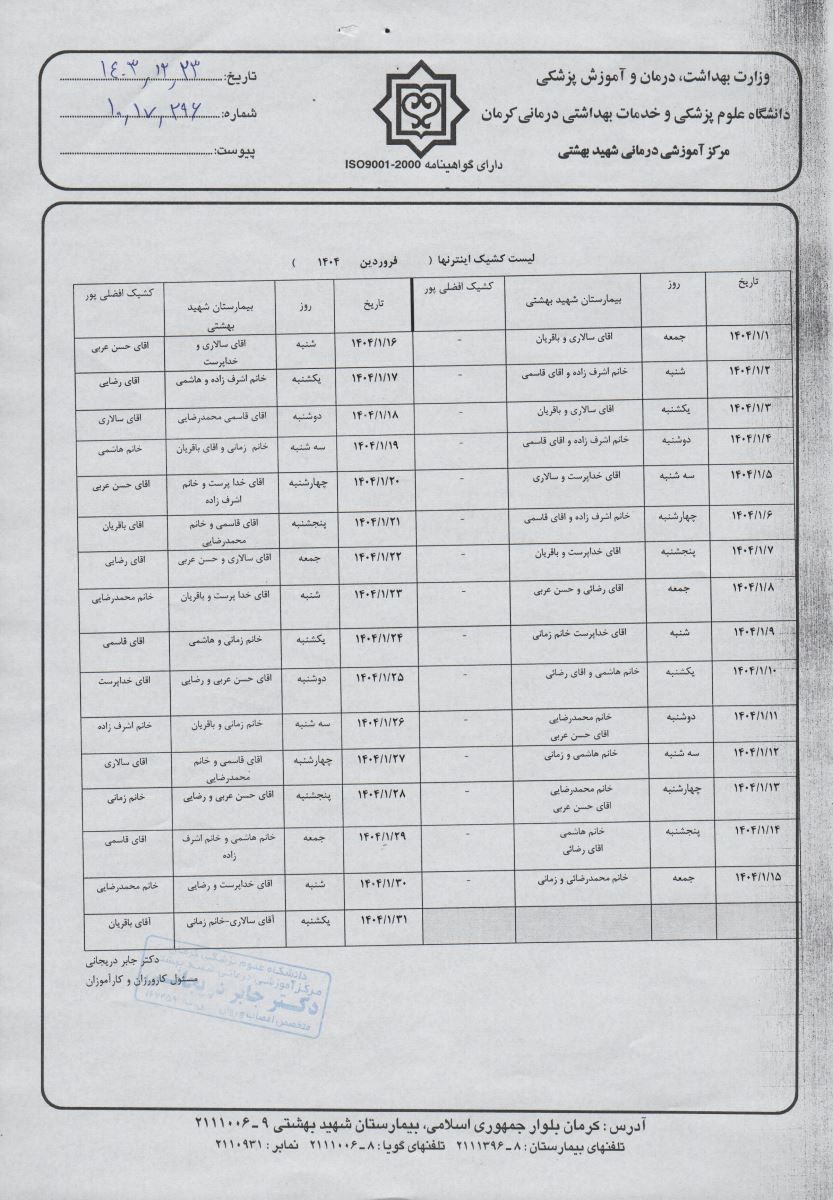 وزارت بهداشت، درمان و آموزش پزشکی
دانشگاه علوم پزشکی و خدمات بهداشتی درمانی کرمان
مرکز آموزشی درمانی شهید بهشتی
دارای گواهینامه ISO9001-2000
تاریخ: ۱۴۰۳,۱۲,۲۳
شماره: ۱۰,۱۷,۲۹۶
پیوست:
لیست کشیک اینترنها ( فروردین ۱۴۰۴ )
تاریخ روز بیمارستان شهید بهشتی کشیک افضلی پور
۱۴۰۴/۱/۱ جمعه اقای سالاری و باقریان -
۱۴۰۴/۱/۲ شنبه خانم اشرف زاده و اقای قاسمی -
۱۴۰۴/۱/۳ یکشنبه اقای سالاری و باقریان -
۱۴۰۴/۱/۴ دوشنبه خانم اشرف زاده و اقای قاسمی -
۱۴۰۴/۱/۵ سه شنبه اقای خداپرست و سالاری -
۱۴۰۴/۱/۶ چهارشنبه خانم اشرف زاده و اقای قاسمی -
۱۴۰۴/۱/۷ پنجشنبه اقای خداپرست و باقریان -
۱۴۰۴/۱/۸ جمعه اقای رضائی و حسن عربی -
۱۴۰۴/۱/۹ شنبه اقای خداپرست خانم زمانی -
۱۴۰۴/۱/۱۰ یکشنبه خانم هاشمی و اقای رضائی -
۱۴۰۴/۱/۱۱ دوشنبه خانم محمدرضایی -
اقای حسن عربی
۱۴۰۴/۱/۱۲ سه شنبه خانم هاشمی و زمانی -
۱۴۰۴/۱/۱۳ چهارشنبه خانم محمدرضایی -
اقای حسن عربی
۱۴۰۴/۱/۱۴ پنجشنبه خانم هاشمی -
اقای رضائی
۱۴۰۴/۱/۱۵ جمعه خانم محمدرضائی و زمانی -
تاریخ روز بیمارستان شهید کشیک افضلی پور
بهشتی
۱۴۰۴/۱/۱۶ شنبه اقای سالاری و اقای حسن عربی
خداپرست
۱۴۰۴/۱/۱۷ یکشنبه خانم اشرف زاده و هاشمی اقای رضایی
۱۴۰۴/۱/۱۸ دوشنبه اقای قاسمی محمدرضایی اقای سالاری
۱۴۰۴/۱/۱۹ سه شنبه خانم زمانی و اقای باقریان خانم هاشمی
۱۴۰۴/۱/۲۰ چهارشنبه اقای خدا پرست و خانم اقای حسن عربی
اشرف زاده
۱۴۰۴/۱/۲۱ پنجشنبه اقای قاسمی و خانم اقای باقریان
محمدرضایی
۱۴۰۴/۱/۲۲ جمعه اقای سالاری و حسن عربی اقای رضایی
۱۴۰۴/۱/۲۳ شنبه اقای خدا پرست و باقریان خانم محمدرضایی
۱۴۰۴/۱/۲۴ یکشنبه خانم زمانی و هاشمی اقای قاسمی
۱۴۰۴/۱/۲۵ دوشنبه اقای حسن عربی و رضایی اقای خداپرست
۱۴۰۴/۱/۲۶ سه شنبه خانم زمانی و باقریان خانم اشرف زاده
۱۴۰۴/۱/۲۷ چهارشنبه اقای قاسمی و خانم اقای سالاری
محمدرضایی
۱۴۰۴/۱/۲۸ پنجشنبه اقای حسن عربی و رضایی خانم زمانی
۱۴۰۴/۱/۲۹ جمعه خانم هاشمی و خانم اشرف اقای قاسمی
زاده
۱۴۰۴/۱/۳۰ شنبه اقای خداپرست و رضایی خانم محمدرضایی
۱۴۰۴/۱/۳۱ یکشنبه آقای سالاری-خانم زمانی آقای باقریان
دکتر جابر دریجانی
مسئول کارورزان و کارآموزان
دانشگاه علوم پزشکی کرمان
مرکز آموزشی درمانی شهید بهشتی
دکتر جابر
متخصص اعصاب و روان
آدرس : کرمان بلوار جمهوری اسلامی، بیمارستان شهید بهشتی ۹ ـ ۲۱۱۱۰۰۶
تلفنهای بیمارستان : ۸ ـ ۲۱۱۱۳۹۶ تلفنهای گویا : ۸ ـ ۲۱۱۱۰۰۶ نمابر : ۲۱۱۰۹۳۱